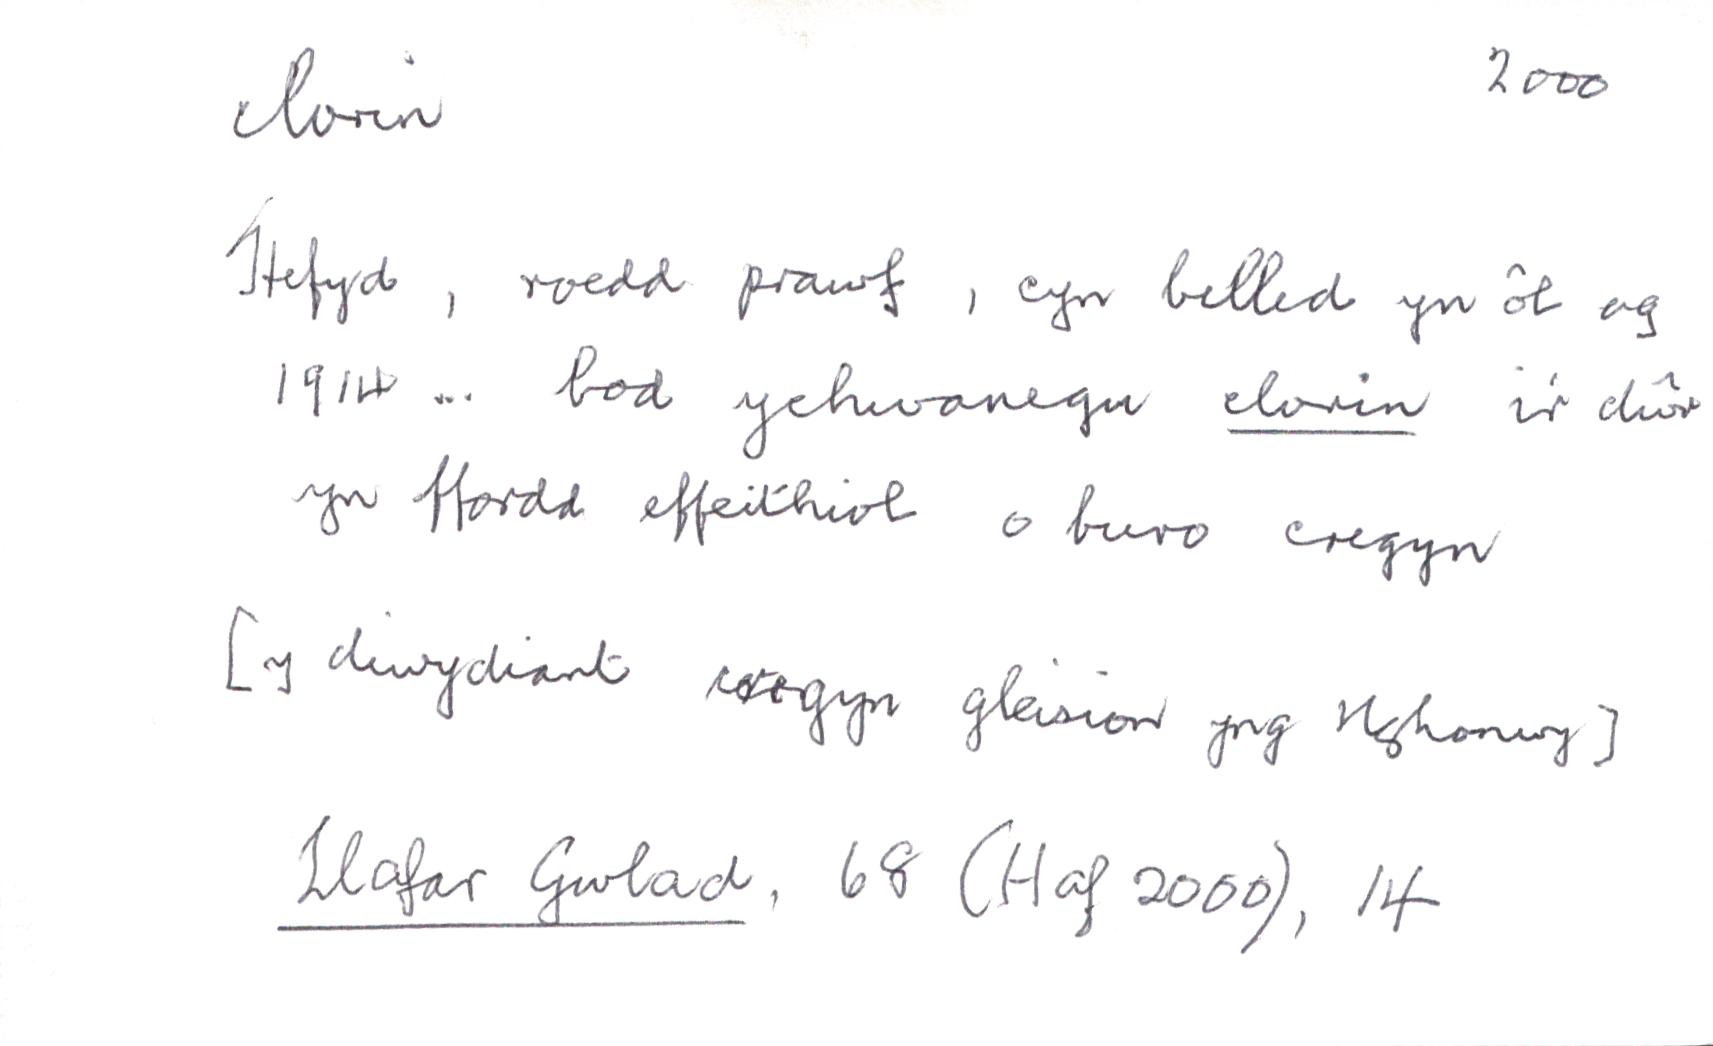 clorin 2000
Hefyd, roedd prawf, cyn belled yn ôl ag
1914 ... bod ychwanegu clorin i'r dŵr
yn ffordd effeithiol o buro cregyn
[y diwydiant cregyn gleision yng Nghonwy]
Llafar Gwlad, 68 (Haf 2000), 14